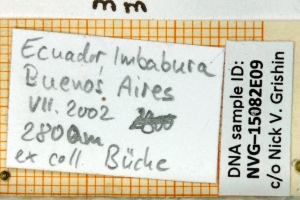 mm
Ecuador Imbabura
Buenos Aires
VII. 2002
2800m
ex coll. Büche
DNA sample ID:
NVG-15082E09
c/o Nick V. Grishin